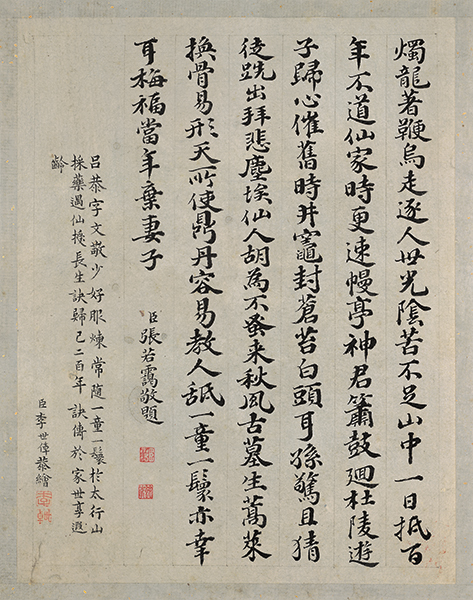 燭龍著鞭烏走逐人世光陰苦不足山中一日抵百
年不道仙家時更速幔亭神君簫鼓廻杜陵遊
子歸心催舊時井竈封蒼苔白頭耳孫驚且猜
徒跣出拜悲塵埃仙人胡為不蚤来秋風古墓生蒿萊
換骨易形天所使鼎丹容易教人舐一童一鬟亦幸
耳梅福當年棄妻子
臣張若靄敬題
呂恭字文敬少好服煉常隨一童一鬟於太行山
採藥遇仙授長生訣歸已二百年訣傳於家世享遐
齡
臣李世倬恭繪